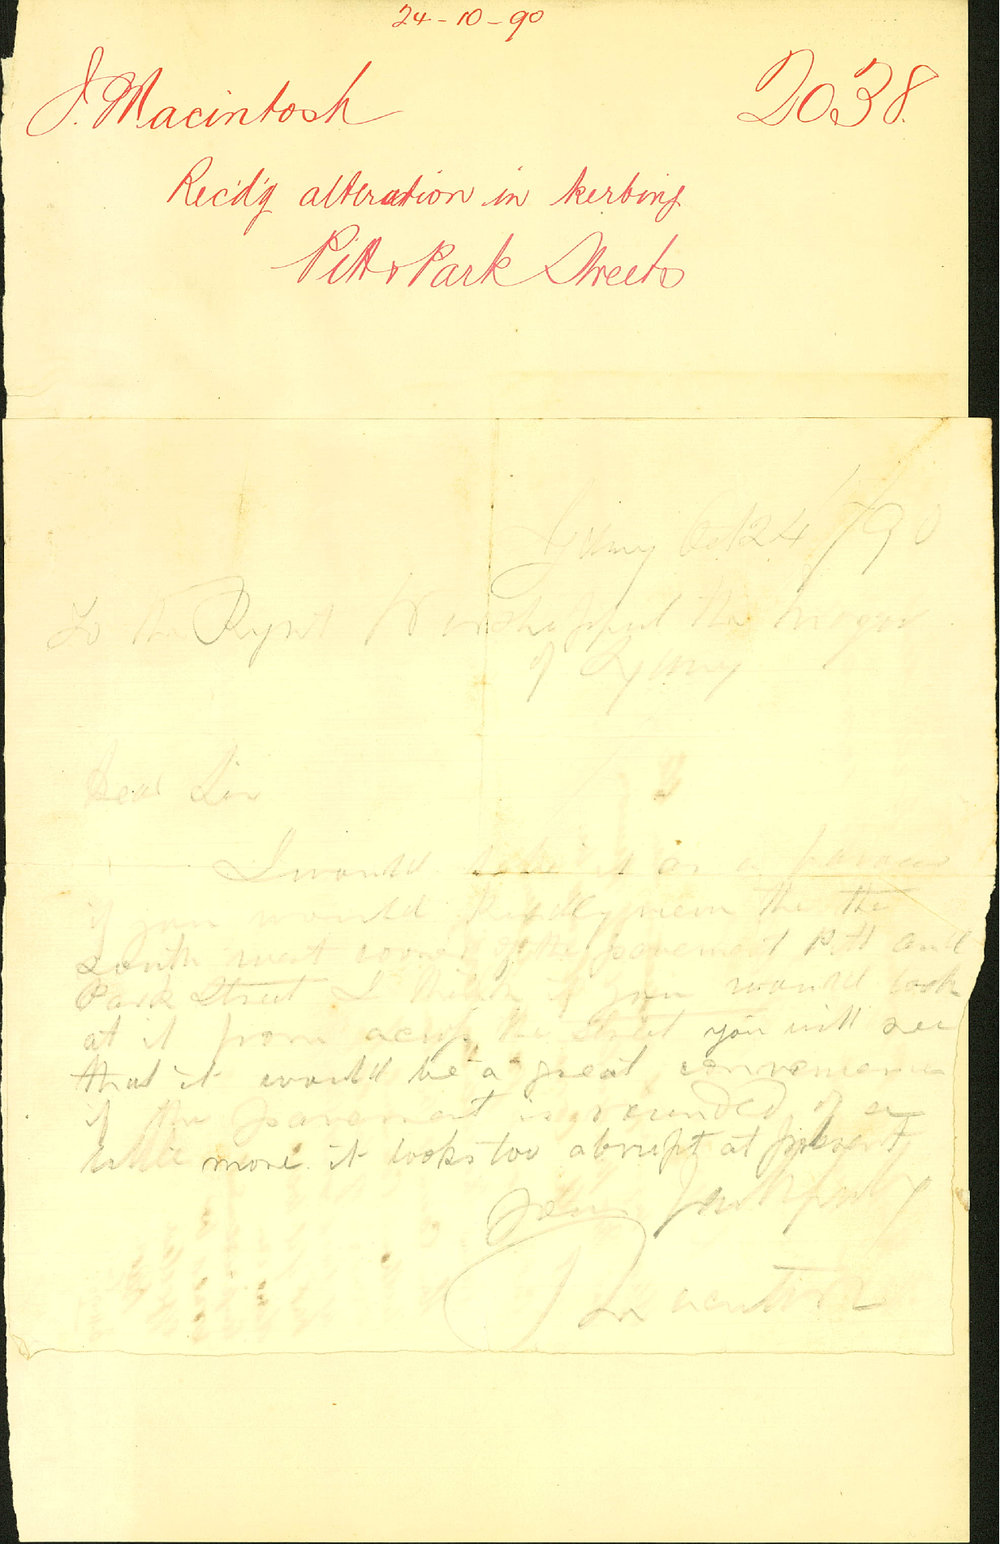 24-10-90
J. Macintosh 2038.
Rec'd'g alteration in kerbing
Pitt & Park Streets
Sydney Oct 24/90
To the Ryght Worshipful the Mayor
of Sydney
Dear Sir
I would take it as a favour
if you would kindly view the the
South west corner of the pavement Pitt and
Park Street I think if you would look
at it from across the Street you will see
that it would be a great convenience
if the pavement is rounded of a
little more it looks too abrupt at present
Yours faithfully
J Macintosh